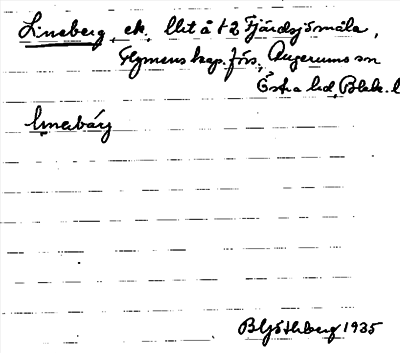 Lineberg, ek. llit å 1/2 Fjärdsjömåla,
Flymens kap. förs., Augerums sn
Östra hd, Blek. l
lineb̀árj
B Göthberg 1935